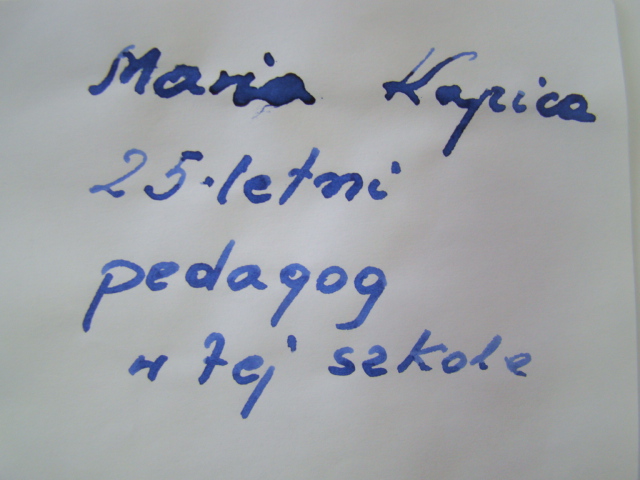 Maria Kapica
25-letni
pedagog
w tej szkole